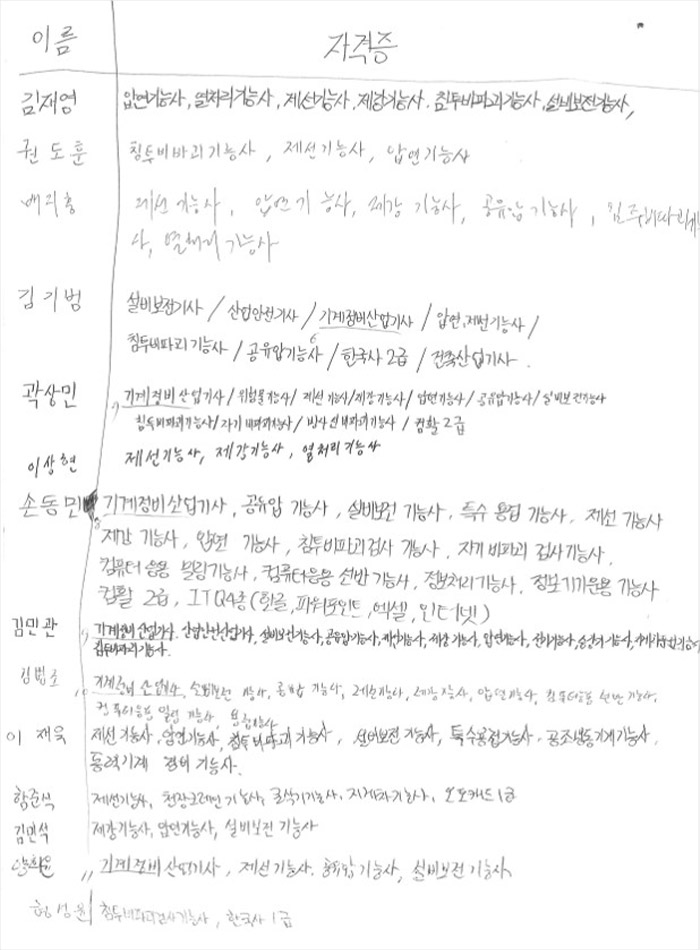 이름 자격증
김재영 압연기능사, 열처리기능사, 제선기능사, 제강기능사, 침투비파괴기능사, 설비보전기능사,
권도훈 침투비바괴기능사, 제선기능사, 압연기능사
제선기능사, 압연기능사, 제강 기능사, 공유압기능사,
사, 열처리 기능사
김기범 설비보전기사 / 산업안전기사 / 기계정비산업기사 / 압연,제선기능사 /
침투비파괴기능사 / 공유압기능사 / 한국사 2급 / 건축산업기사.
곽상민 기계정비산업기사 / 위험물기능사 / 제선기능사 / 제강기능사 / 압연기능사 / 공유압기능사 / 설비보전기능사
침투비파괴기능사 / 자기비파괴기능사 / 방사선비파괴기능사 / 컴활 2급
이상현 제선기능사, 제강기능사, 열처리기능사
손동민 기계정비산업기사, 공유압 기능사, 설비보전 기능사, 특수용접 기능사, 제선 기능사
제강 기능사, 압연 기능사, 침투비파괴검사 기능사, 자기비파괴 검사기능사,
컴퓨터응용 밀링기능사, 컴퓨터응용 선반 기능사, 정보처리기능사, 정보기기운용 기능사
컴활 2급, ITQ4종(한글, 파워포인트, 엑셀, 인터넷)
김민관 기계정비산업기사, 산업안전산업기사, 설비보전기능사, 공유압기능사, 제선기능사, 제강기능사, 압연기능사, 전기기능사,
침투비파괴기능사.
기계정비산업기사, 설비보전 기능사, 공유압 기능사, 제선기능사, 제강기능사, 압연기능사, 컴퓨터응용 선반기능사,
컴퓨터응용 밀링 기능사, 용접기능사
이재욱 제선기능사, 압연기능사, 침투비파괴기능사, 설비보전기능사, 특수용접기능사, 공조냉동기계기능사,
동력기계 정비 기능사.
황준식 제선기능사, 천장크레인기능사, 굴삭기기능사, 지게차기능사, 오토캐드 1급
김민석 제강기능사, 압연기능사, 설비보전 기능사
기계정비산업기사, 제선기능사, 공유압기능사, 설비보전기능사
침투비파괴검사기능사, 한국사 1급